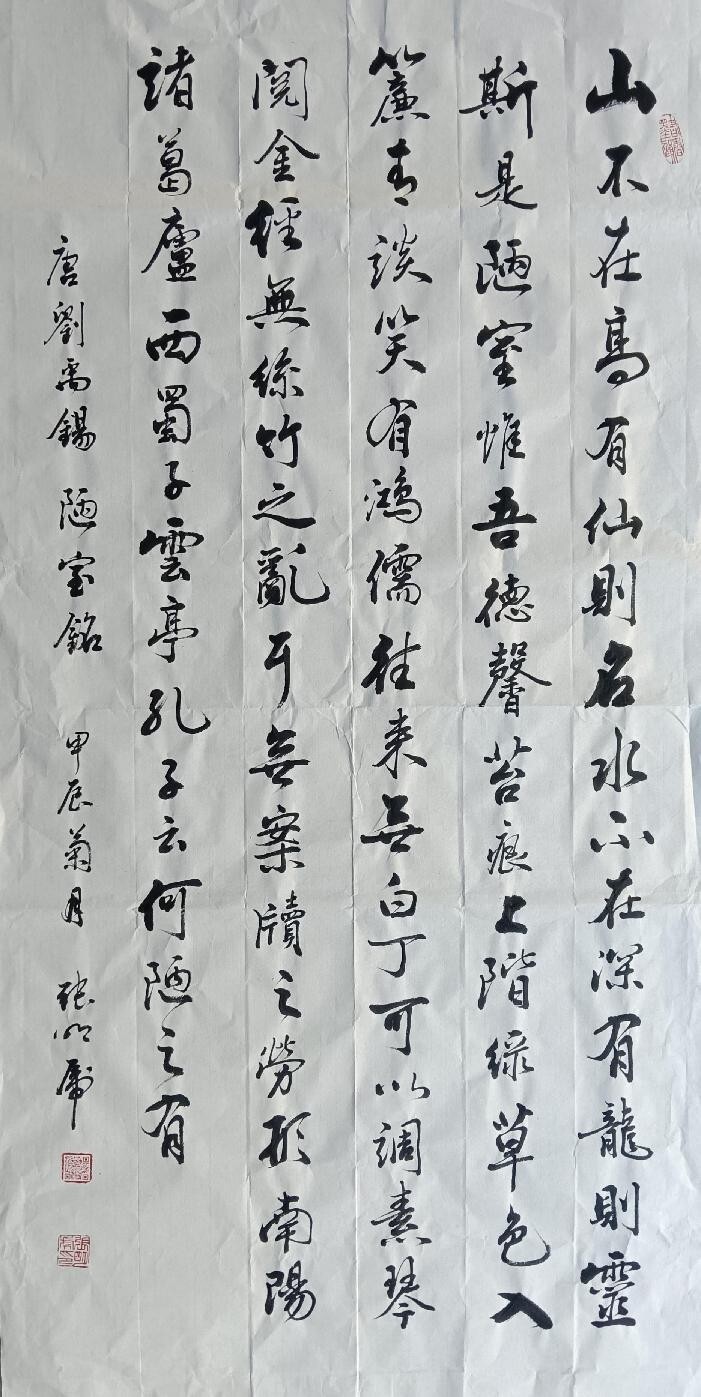 山不在高有仙則名水不在深有龍則靈
斯是陋室惟吾德馨苔痕上階綠草色入
簾青談笑有鴻儒往來無白丁可以調素琴
閱金經無絲竹之亂耳無案牘之勞形南陽
諸葛廬西蜀子雲亭孔子云何陋之有
唐劉禹錫陋室銘 甲辰菊月 張